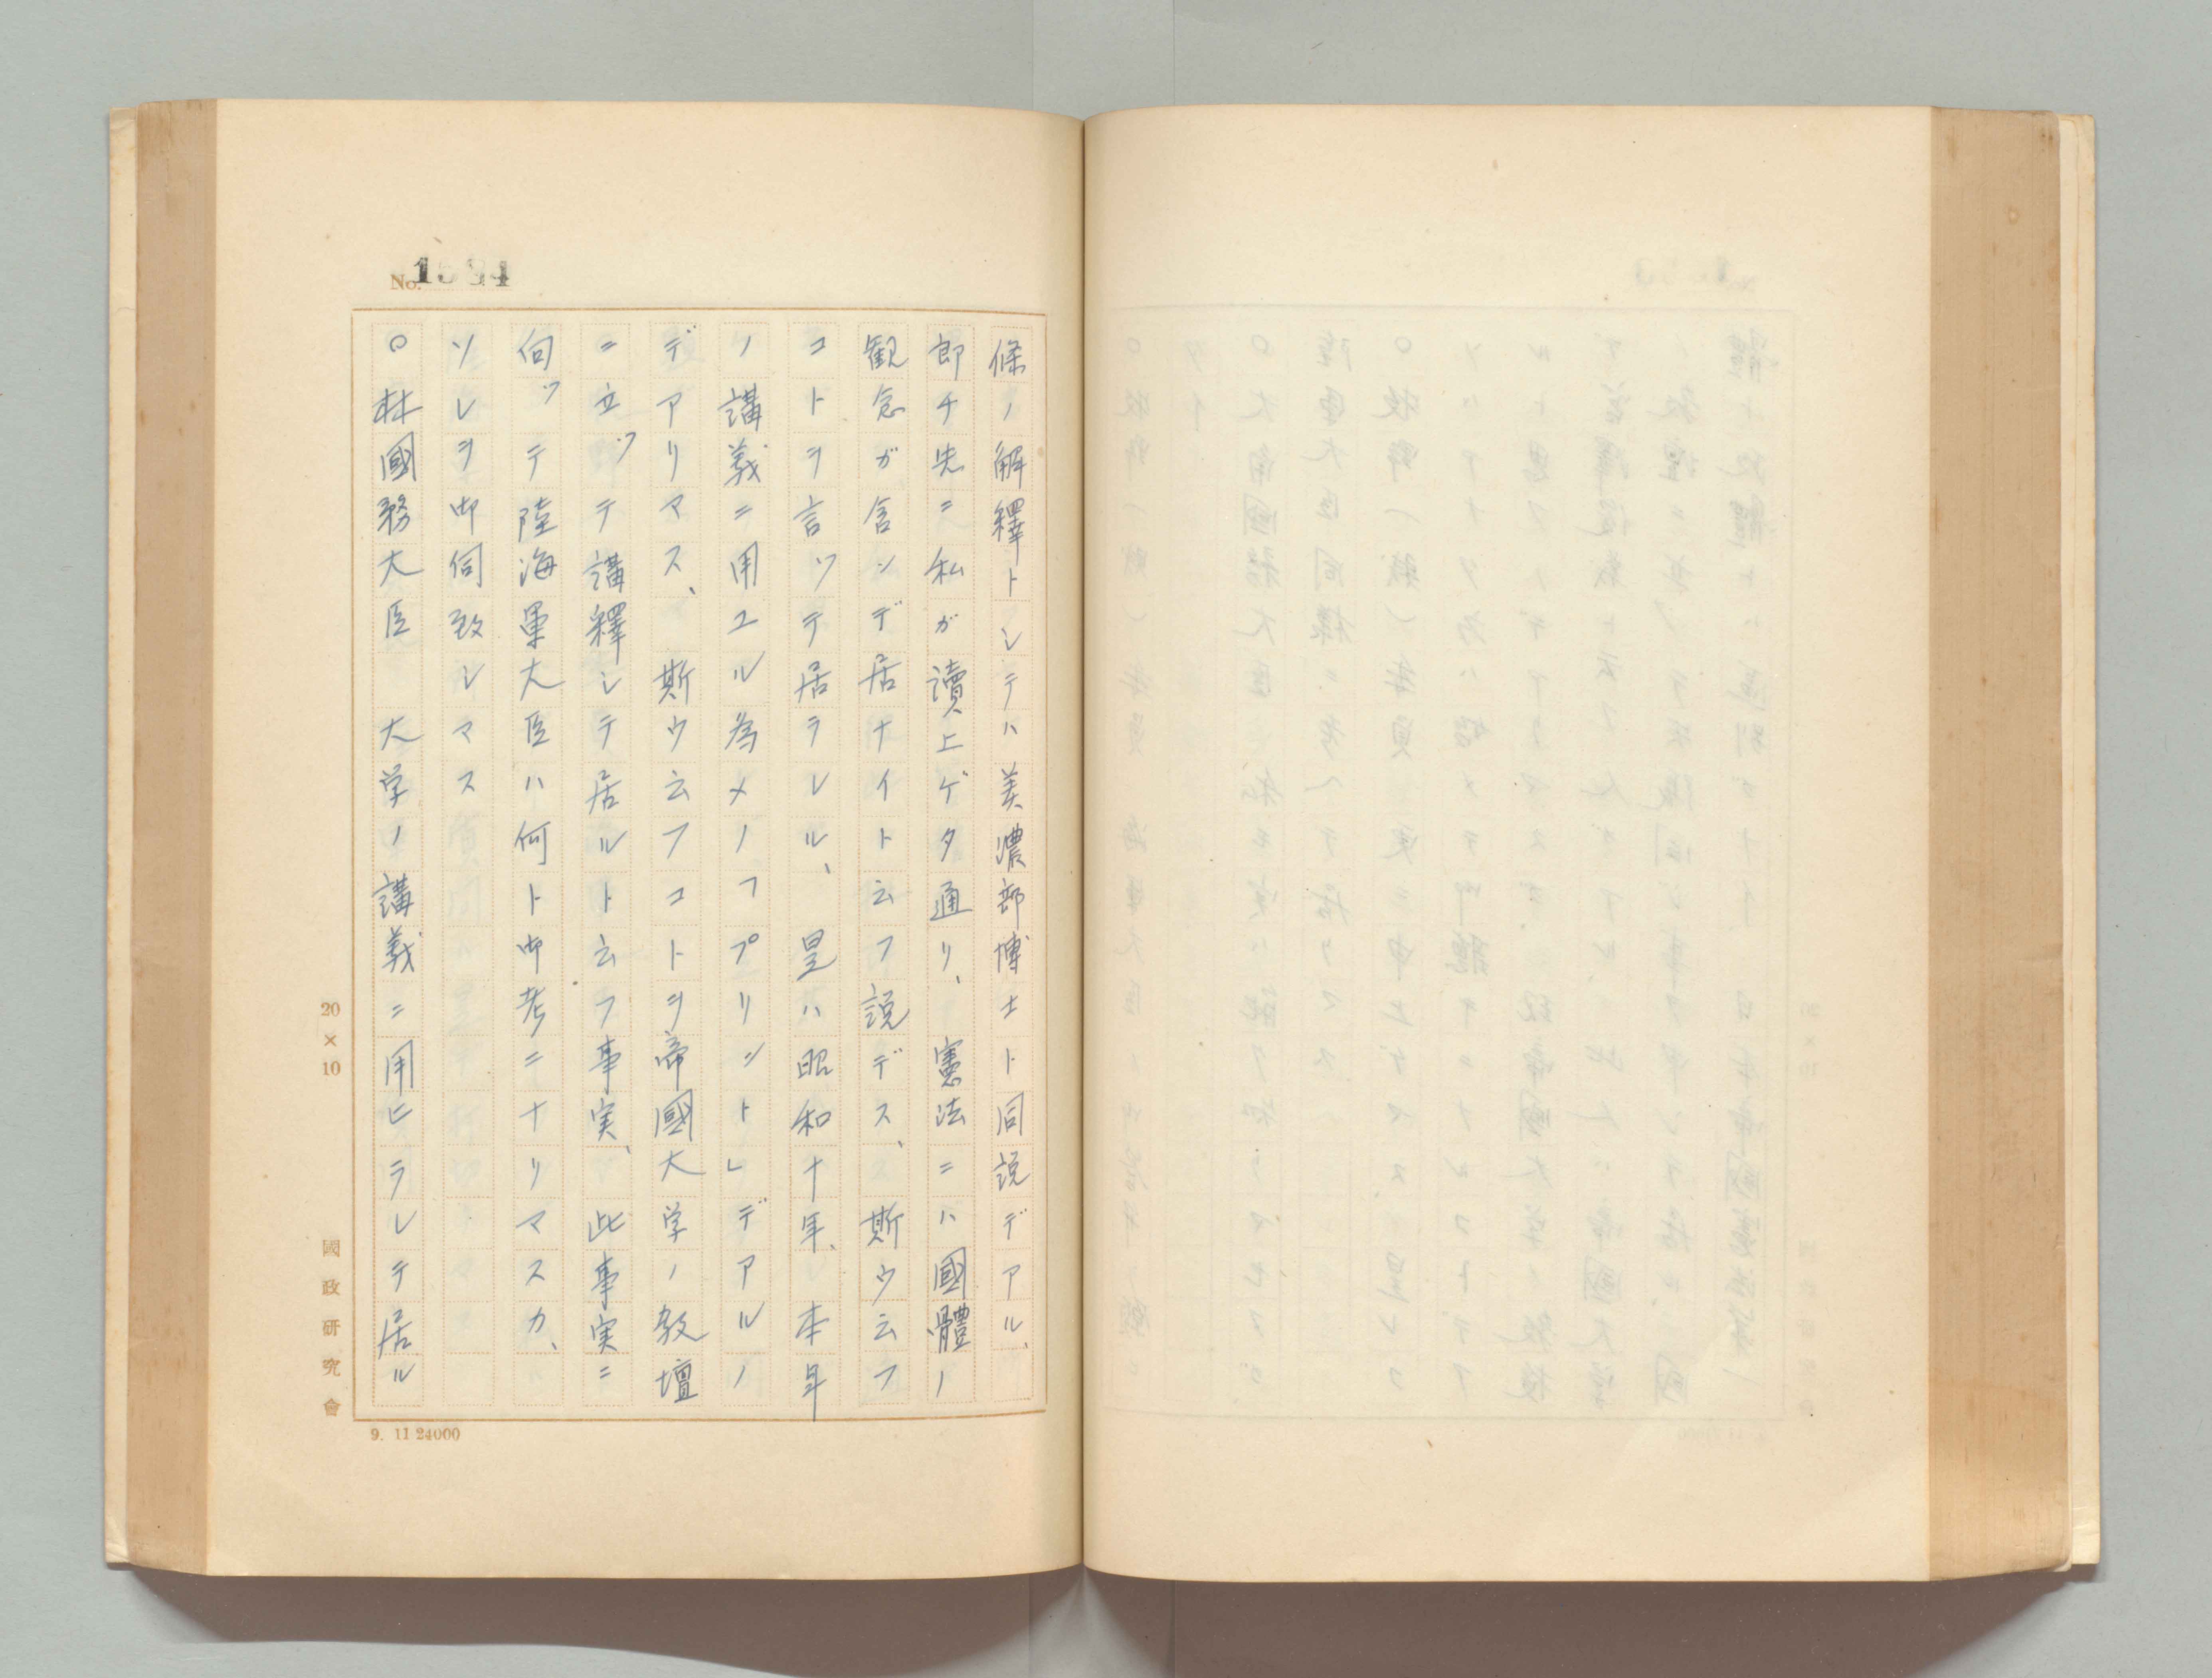 No. 1594
條ノ解釋トシテハ美濃部博士ト同説デアル、
即チ先ニ私ガ讀上ゲタ通リ、憲法ニハ國體ノ
観念ガ含ンデ居ナイト云フ説デス、斯ウ云フ
コトヲ言ツテ居ラレル、是ハ昭和十年、本年
ノ講義ニ用ユル為メノフプリント」デアルノ
デアリマス、斯ウ云フコトヲ帝國大学ノ教壇
ニ立ツテ講釋シテ居ルト云フ事実、此事実ニ
向ツテ陸海軍大臣ハ何ト御考ニナリマスカ、
ソレヲ御伺致シマス
〇林國務大臣 大学ノ講義ニ用ヒラレテ居ル
20×10
國政研究會
9. 11 24000